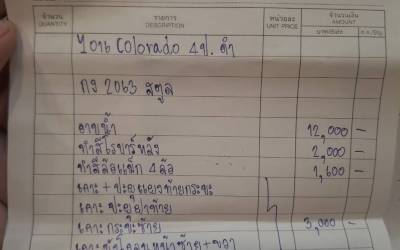 จำนวน
QUANTITY
รายการ
DESCRIPTION
หน่วยละ
UNIT PRICE
จำนวนเงิน
AMOUNT
2016 Colorado 4ป. ดำ
กง 2063 สตูล
อาบน้ำ 12,000 -
ทำสีโรบาร์หลัง 2,000 -
ทำสีล้อแม็ก 4 ล้อ 1,600 -
เคาะ + ปะผุแผงท้ายกระบะ
เคาะ ประตูฝาท้าย
เคาะ กระบะซ้าย 3,000 -